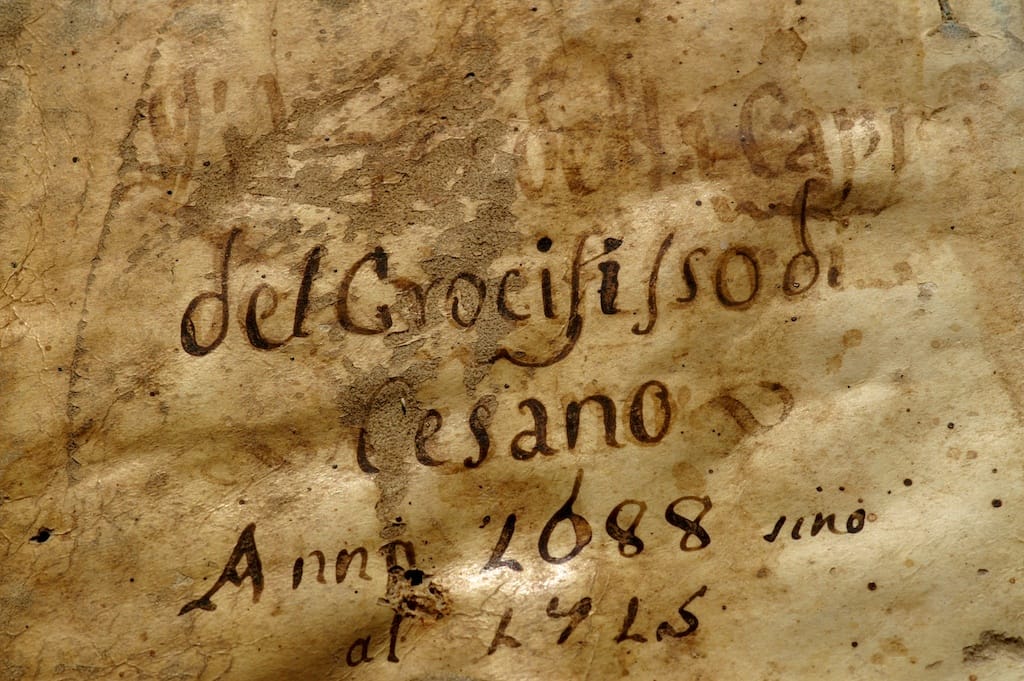 Capp
del Crocifisso di
Cesano
Anno 1688 sino
al 1715